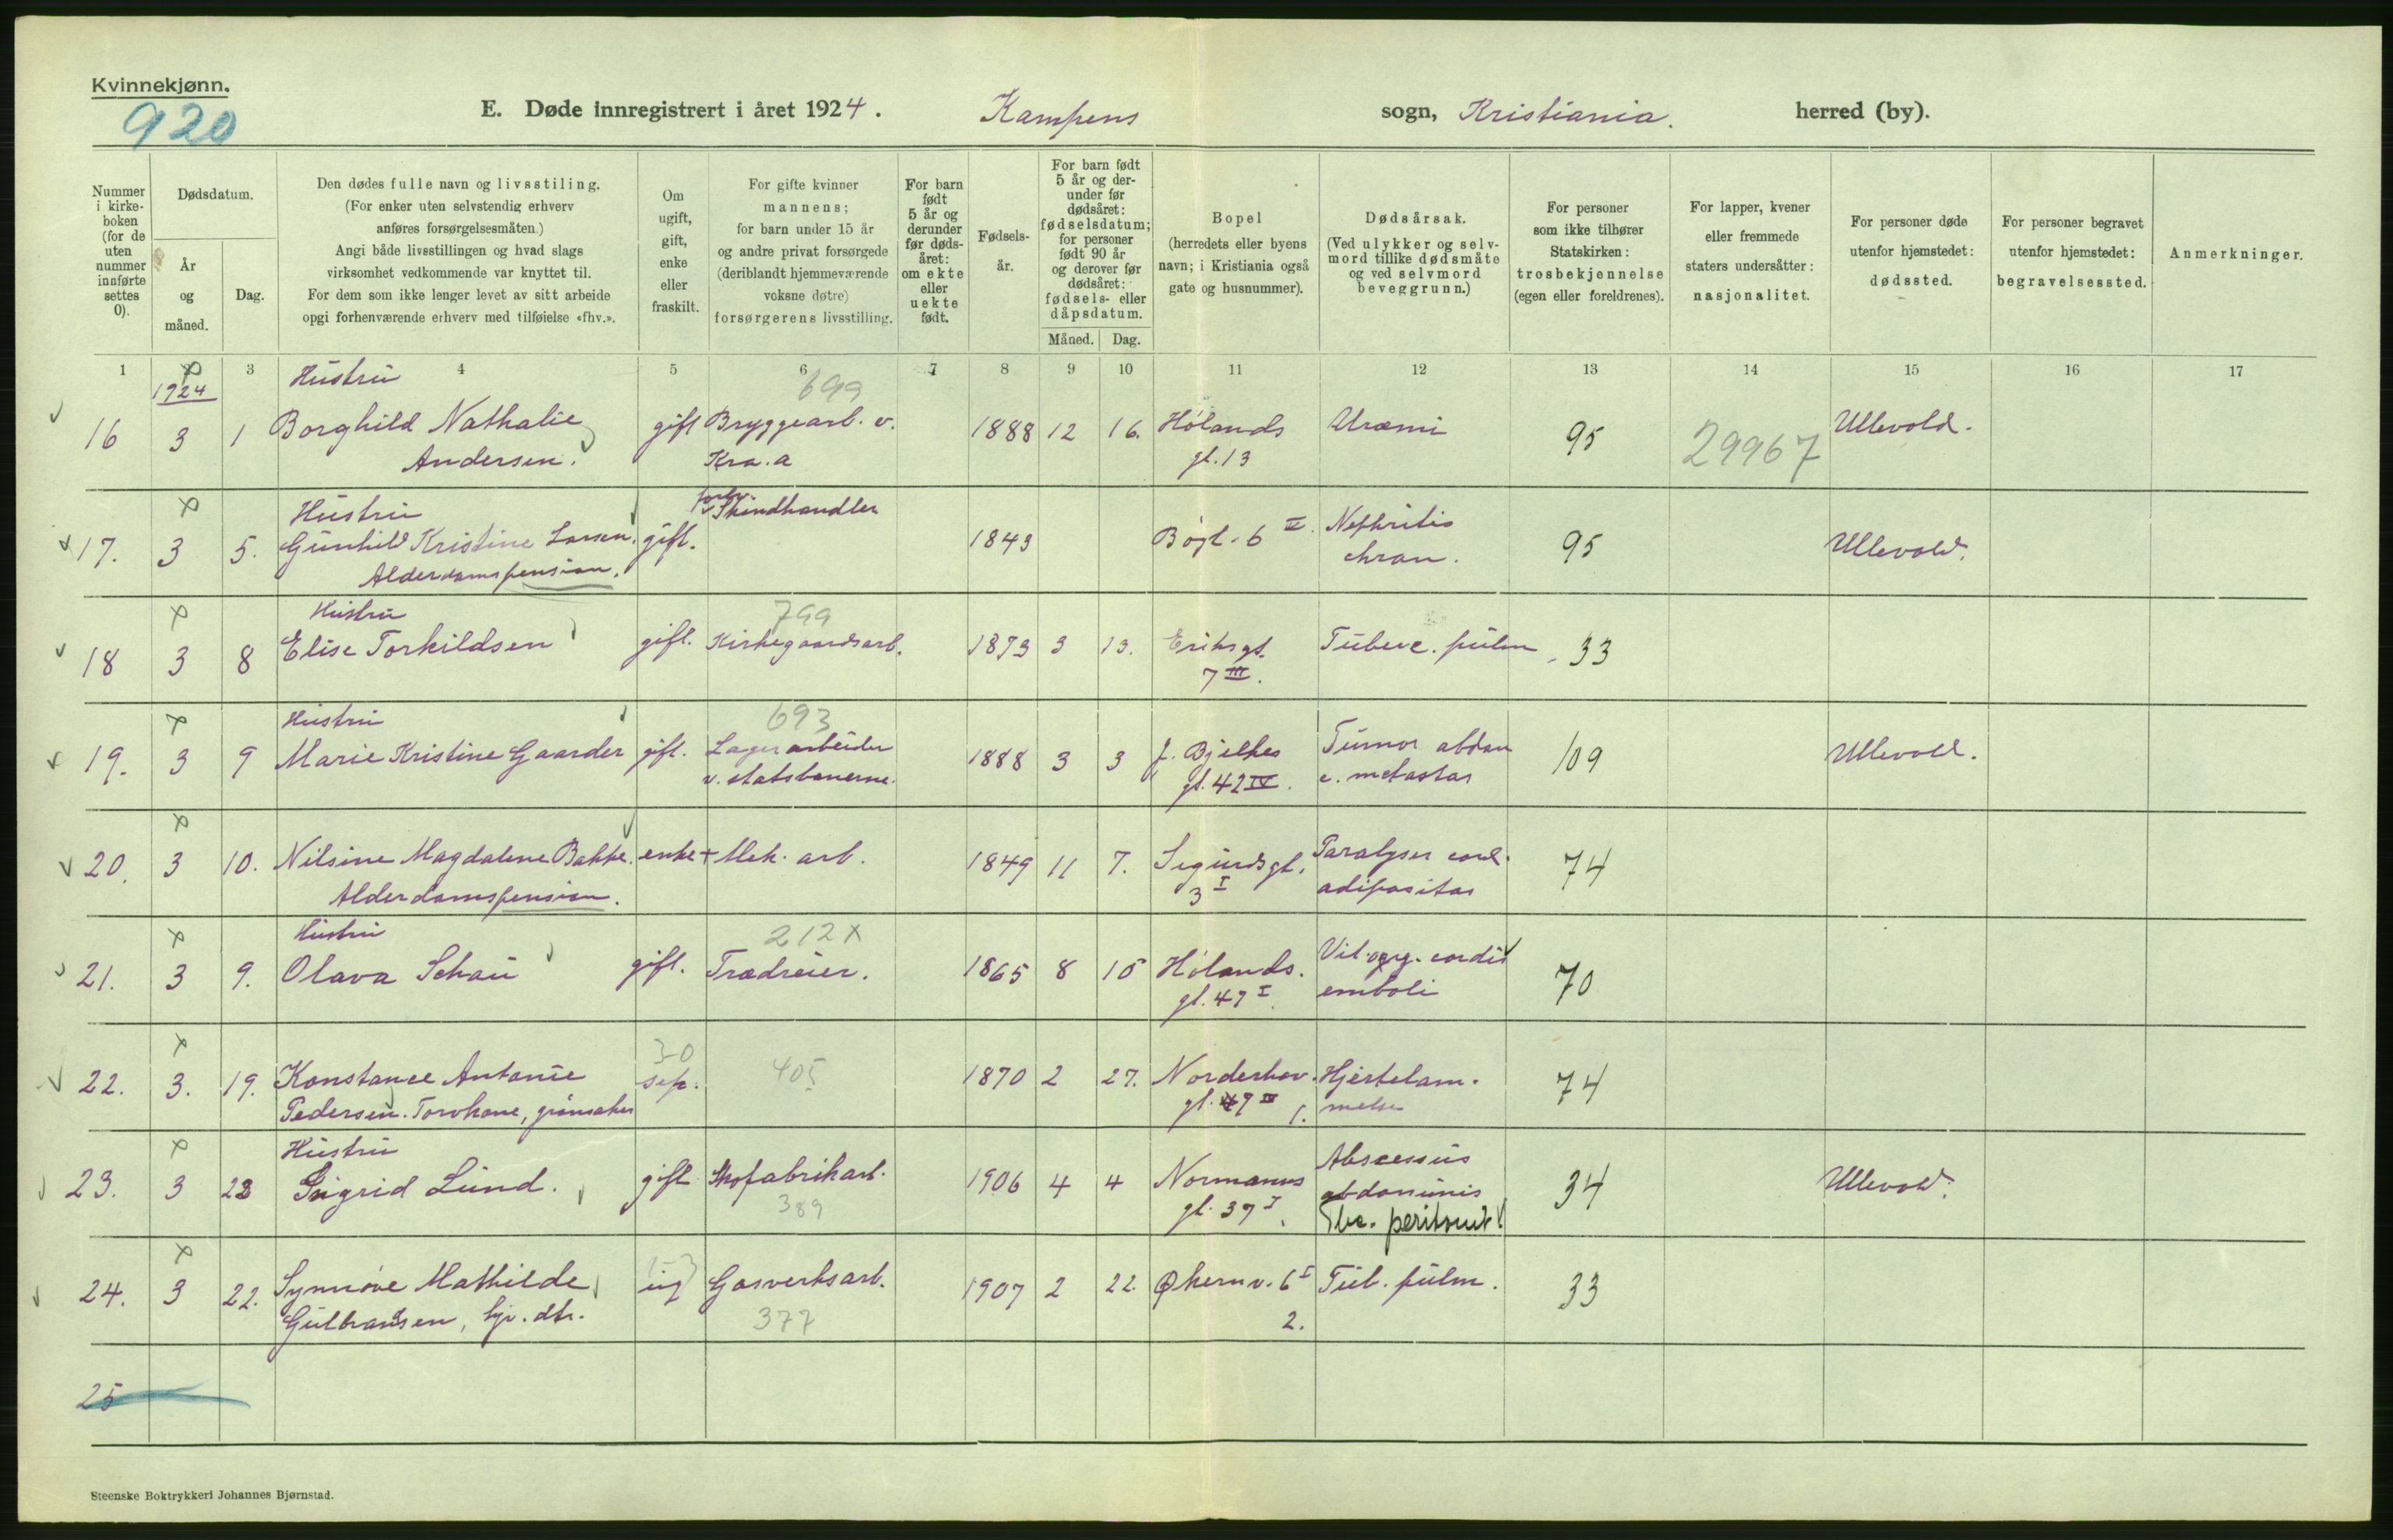 Kvinnekjønn.
920
E. Døde innregistrert i året 1924. Kampens sogn, Kristiania. herred (by).
Nummer i kirkeboken (for de uten nummer innførte settes 0).
Dødsdatum.
År og måned.
Dag.
Den dødes fulle navn og livsstiling.
(For enker uten selvstendig erhverv
anføres forsørgelsesmåten.)
Angi både livsstillingen og hvad slags
virksomhet vedkommende var knyttet til.
For dem som ikke lenger levet av sitt arbeide
opgi forhenværende erhverv med tilføielse «fhv.».
Om ugift, gift, enke eller fraskilt.
For gifte kvinner
mannens;
for barn under 15 år
og andre privat forsørgede
(deriblandt hjemmeværende
voksne døtre)
forsørgerens livsstilling.
For barn født 5 år og derunder før dødsåret: om ekte eller uekte født.
Fødselsår.
For barn født 5 år og derunder før dødsåret: fødselsdatum; for personer født 90 år og derover før dødsåret: fødsels- eller dåpsdatum.
Måned. Dag.
Bopel
(herredets eller byens
navn; i Kristiania også
gate og husnummer).
Dødsårsak.
(Ved ulykker og selvmord tillike dødsmåte
og ved selvmord
beveggrunn.)
For personer
som ikke tilhører
Statskirken:
trosbekjennelse
(egen eller foreldrenes).
For lapper, kvener
eller fremmede
staters undersåtter:
nasjonalitet.
For personer døde
utenfor hjemstedet:
dødssted.
For personer begravet
utenfor hjemstedet:
begravelsessted.
Anmerkninger.
1 3 4 5 6 7 8 9 10 11 12 13 14 15 16 17
1924 Hustru 699
16 3 1 Borghild Nathalie gift Bryggearb. v. 1888 12 16. Hølands Uræmi 95 29967 Ullevold.
Andersen. Kra.a gt. 13
Hustru forhv. Skindhandler
17. 3 5. Gunhild Kristine Larsen. gift. 1843 Bøgt. 6 Nephritis 95 Ullevold.
Alderdomspension. chron.
Hustru 799
18 3 8 Elise Torkildsen gift. Kirkegaardsarb. 1873 3 13. Eriksgt. Tuberc. pulm 33
7 III.
Hustru 693
19. 3 9 Marie Kristine Gaarder gift. Lagerarbeider 1888 3 3 J. Bjelkes Tumor abdom 109 Ullevold.
v. statsbanerne. gt. 42 IV. c. metastas
20. 3 10. Nilsine Magdalene Bakke. enke + Mek. arb. 1849 11 7. Sigurdsgt. Paralyser cord. 74
Alderdomspension. 3 I adipositas
Hustru 212 x
21. 3 9. Olava Schau gift. Trædreier. 1865 8 15 Hølands. Vit. org. cordis 70
gt. 47 I. emboli
30
22. 3. 19. Konstance Antonie sep. 405 1870 2 27. Norderhov. Hjertelam- 74
Pedersen. Torvkone, grønsaker gt. 9 melse
Hustru Abscessus
23. 3 22 Sigrid Lund. gift Skofabrikarb. 1906 4 4 Normanns abdominis 34 Ullevold.
389 gt. 37 I. Tbc. peritonit.
24. 3 22. Synnøve Mathilde ug Gasverksarb. 1907 2 22. Økernv. 6 I Tub. pulm. 33
Gulbrandsen, hjv. dtr. 377 2.
25
Steenske Boktrykkeri Johannes Bjørnstad.